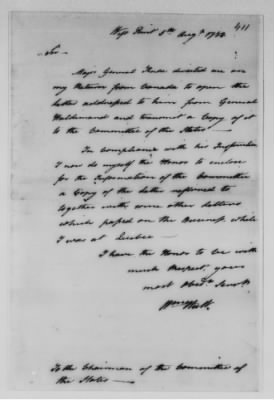 411
West Point 5th Augst 1784
Sir
Major General Knox directed me on
my Return from Canada to open the
letter addressed to him from General
Haldimand and transmit a Copy of it
to the Committee of the States
In compliance with his Instruction
I now do myself the Honor to enclose
for the Information of the Committee
a Copy of the letter referred to
together with some other letters
which passed on the Business while
I was at Quebec
I have the Honor to be with
much Respect, your
most Obedt Servt
Wm Hull
To the Chairman of the Committee of
the States